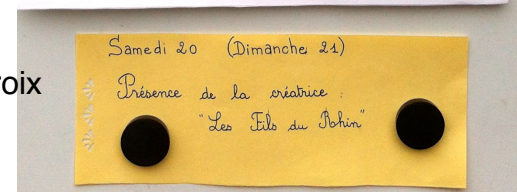 Samedi 20 (Dimanche 21)
roix
Présence de la créatrice :
"Les Fils du Rhin"